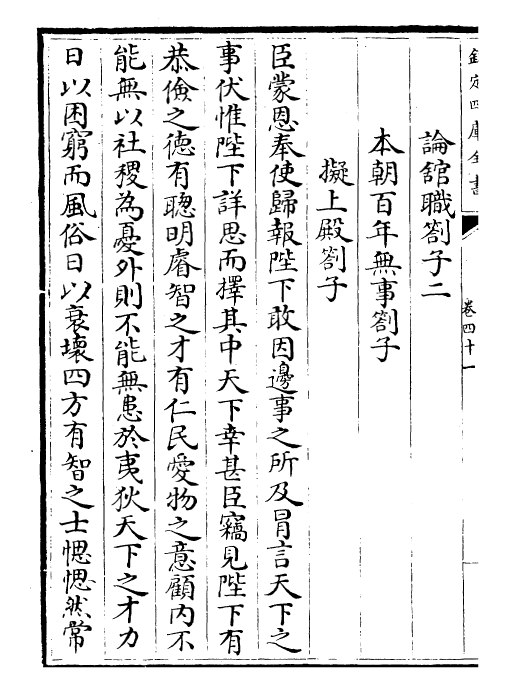 欽定四庫全書
卷四十一
論舘職劄子二
本朝百年無事劄子
擬上殿劄子
臣蒙恩奉使歸報陛下敢因邊事之所及冒言天下之
事伏惟陛下詳思而擇其中天下幸甚臣竊見陛下有
恭儉之德有聰明睿智之才有仁民愛物之意顧内不
能無以社稷為憂外則不能無患於夷狄天下之才力
日以困窮而風俗日以衰壊四方有智之士愢愢然常